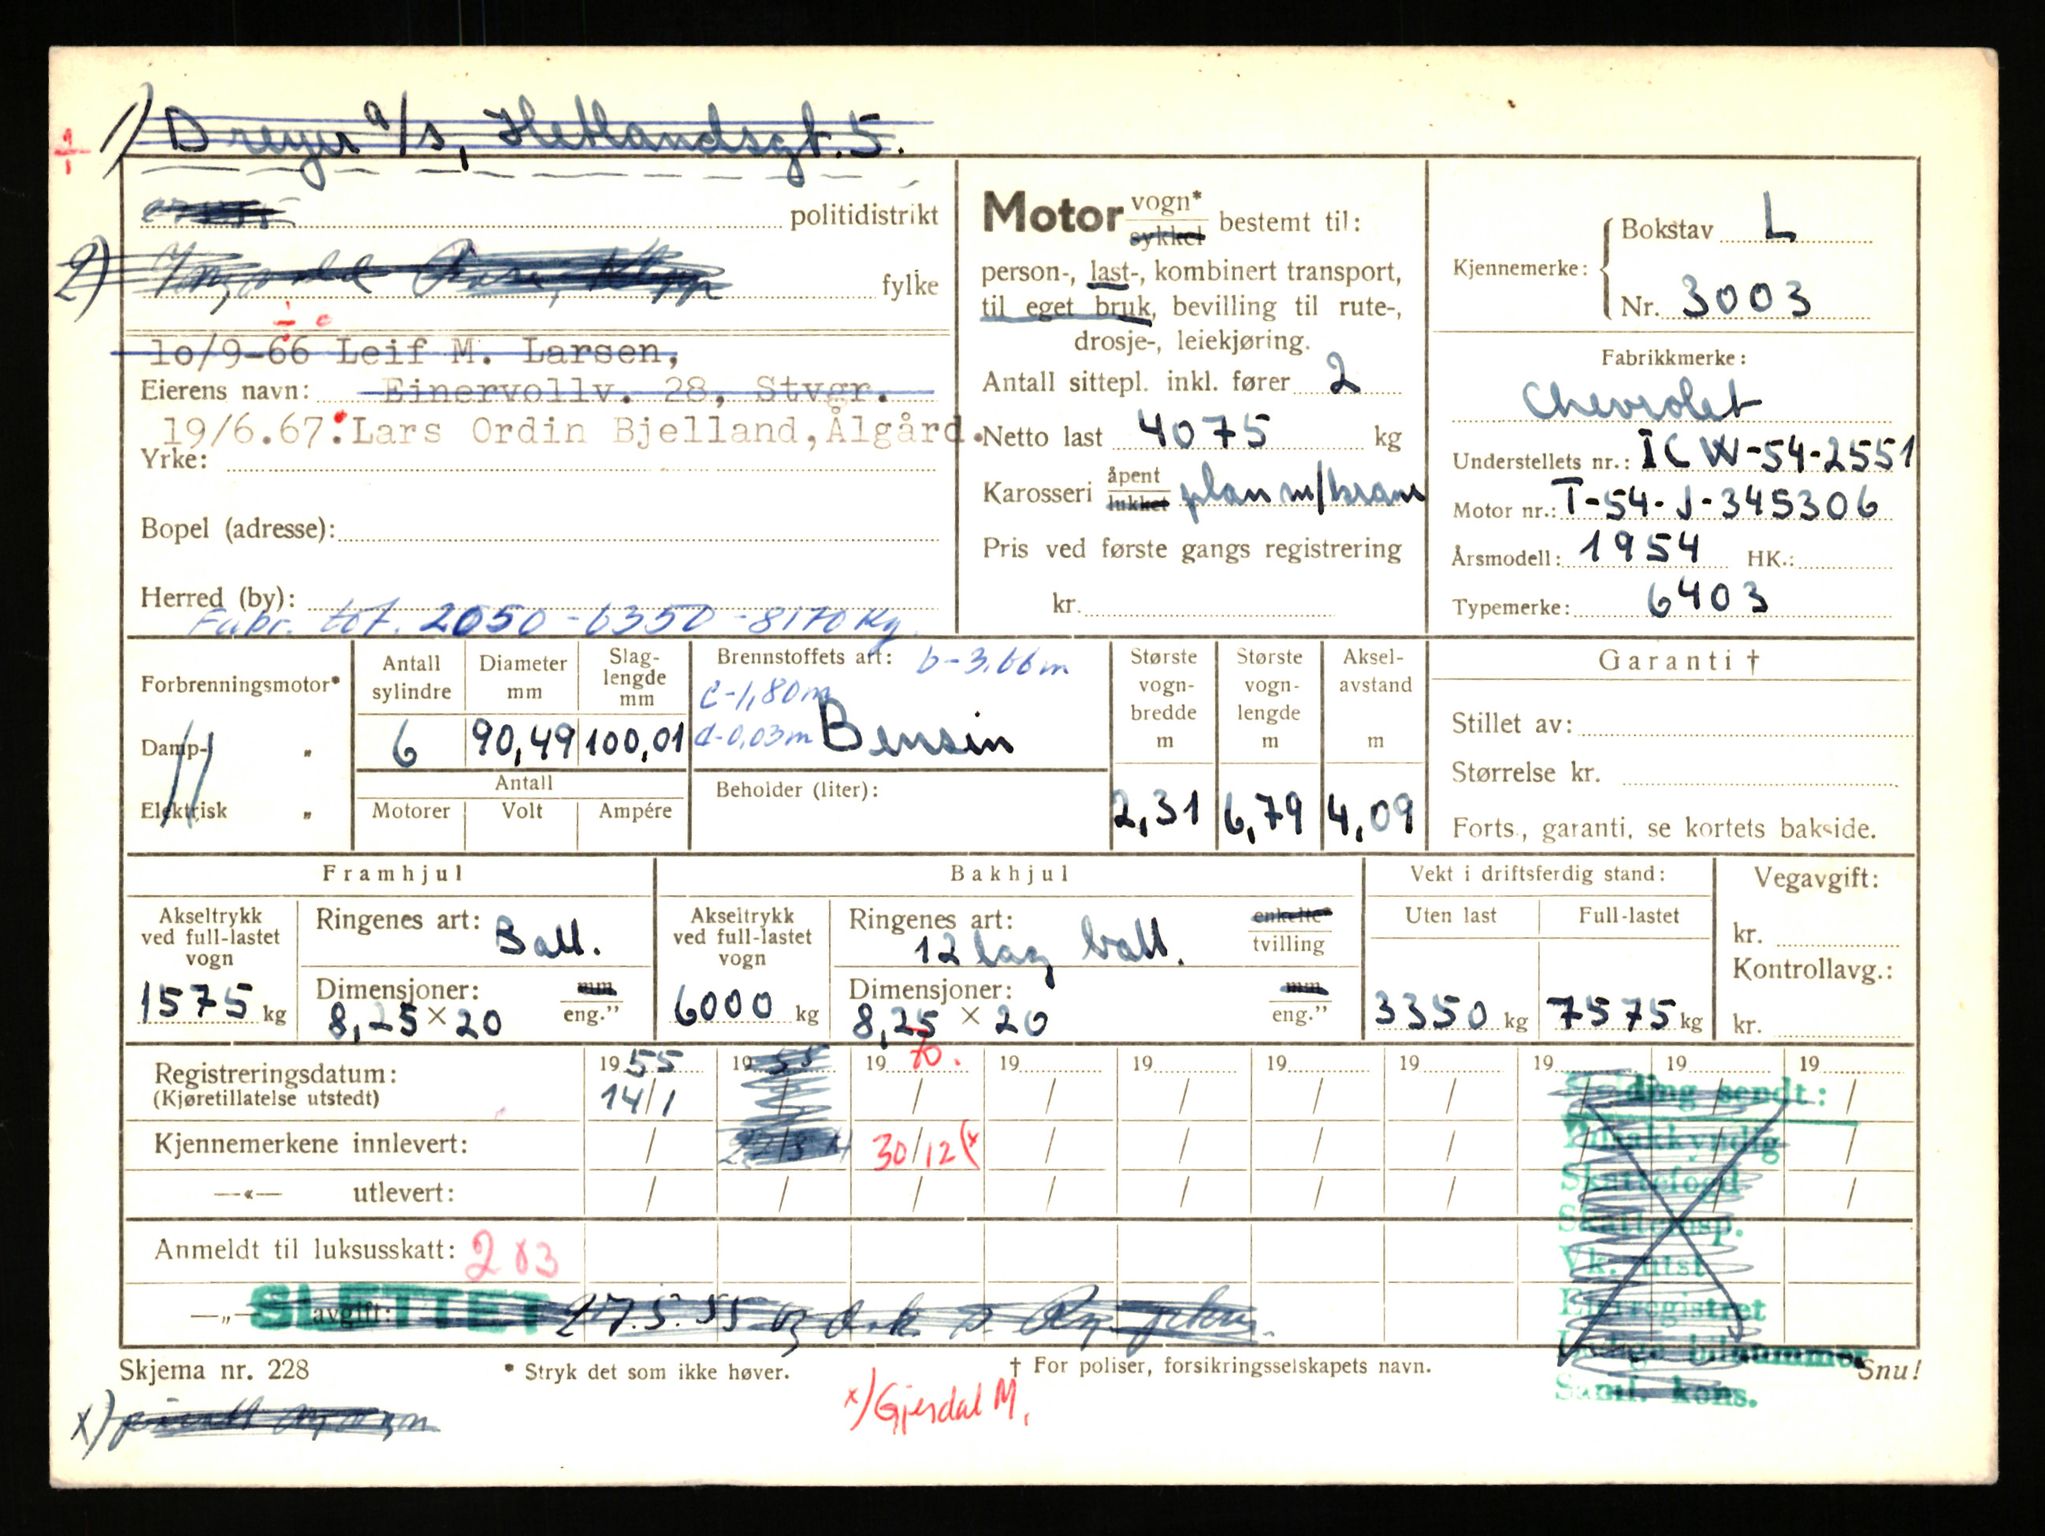 1) Dreyer a/s, Hetlandsgt. 5.
politidistrikt
2)
fylke
10/9-66 Leif M. Larsen,
Eierens navn: Einervollv. 28, Stvgr.
19/6.67: Lars Ordin Bjelland, Ålgård.
Yrke:
Bopel (adresse):
Herred (by):
Fabr. tot. 2050 - 6350 - 8170 kg.
Motor vogn* sykkel bestemt til:
person-, last-, kombinert transport,
til eget bruk, bevilling til rute-,
drosje-, leiekjøring.
Antall sittepl. inkl. fører 2
Netto last 4075 kg
Karosseri åpent lukket plan m/kran
Pris ved første gangs registrering
kr.
Kjennemerke: Bokstav L
Nr. 3003
Fabrikkmerke:
Chevrolet
Understellets nr.: ICW-54-2551
Motor nr.: T-54-J-345306
Årsmodell: 1954 HK.:
Typemerke: 6403
Forbrenningsmotor*
Damp- "
Elektrisk "
Antall sylindre 6
Diameter mm 90,49
Slaglengde mm 100,01
Antall
Motorer Volt Ampére
Brennstoffets art: b-3,66m
c-1,80m
d-0,03m Bensin
Beholder (liter):
Største vognbredde m 2,31
Største vognlengde m 6,79
Akselavstand m 4,09
Garanti †
Stillet av:
Størrelse kr.
Forts., garanti, se kortets bakside.
Framhjul
Akseltrykk ved full-lastet vogn 1575 kg
Ringenes art: Ball.
Dimensjoner: mm eng."
8,25 × 20
Bakhjul
Akseltrykk ved full-lastet vogn 6000 kg
Ringenes art: enkelte* tvilling
12 lag ball.
Dimensjoner: mm eng."
8,25 × 20
Vekt i driftsferdig stand:
Uten last Full-lastet
3350 kg 7575 kg
Vegavgift:
kr.
Kontrollavg.:
kr.
Registreringsdatum: 19 55 19 55 19 70. 19 19 19 19 19 19 19
(Kjøretillatelse utstedt) 14/1 / / / / / / / / /
Kjennemerkene innlevert: / 30/12 (x / / / / / / /
—«— utlevert: / / / / / / / / / /
Anmeldt til luksusskatt: 203
—„— avgift: SLETTET 27.5.55
Melding sendt:
Bilsakkyndig
Skattefogd
Skatteinsp.
Vk. utst
Ekstraregistret
Ledige bilnummer
Saml. kons.
Skjema nr. 228
* Stryk det som ikke høver.
† For poliser, forsikringsselskapets navn.
Snu!
x)
x) Gjesdal M.